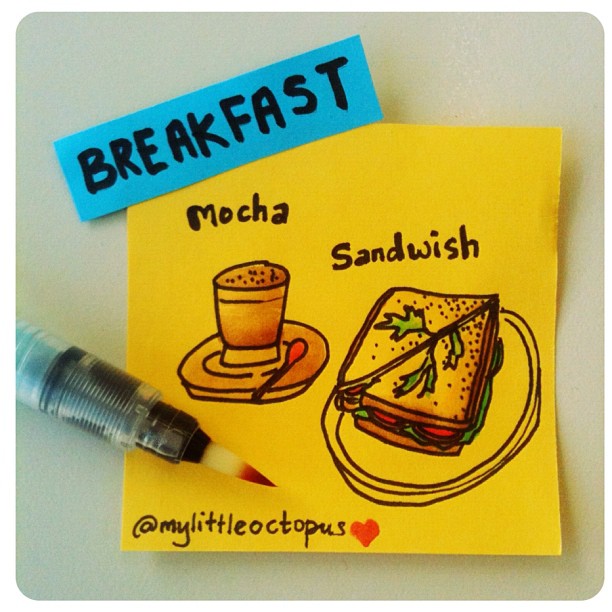 BREAKFAST
Mocha
Sandwish
@mylittleoctopus